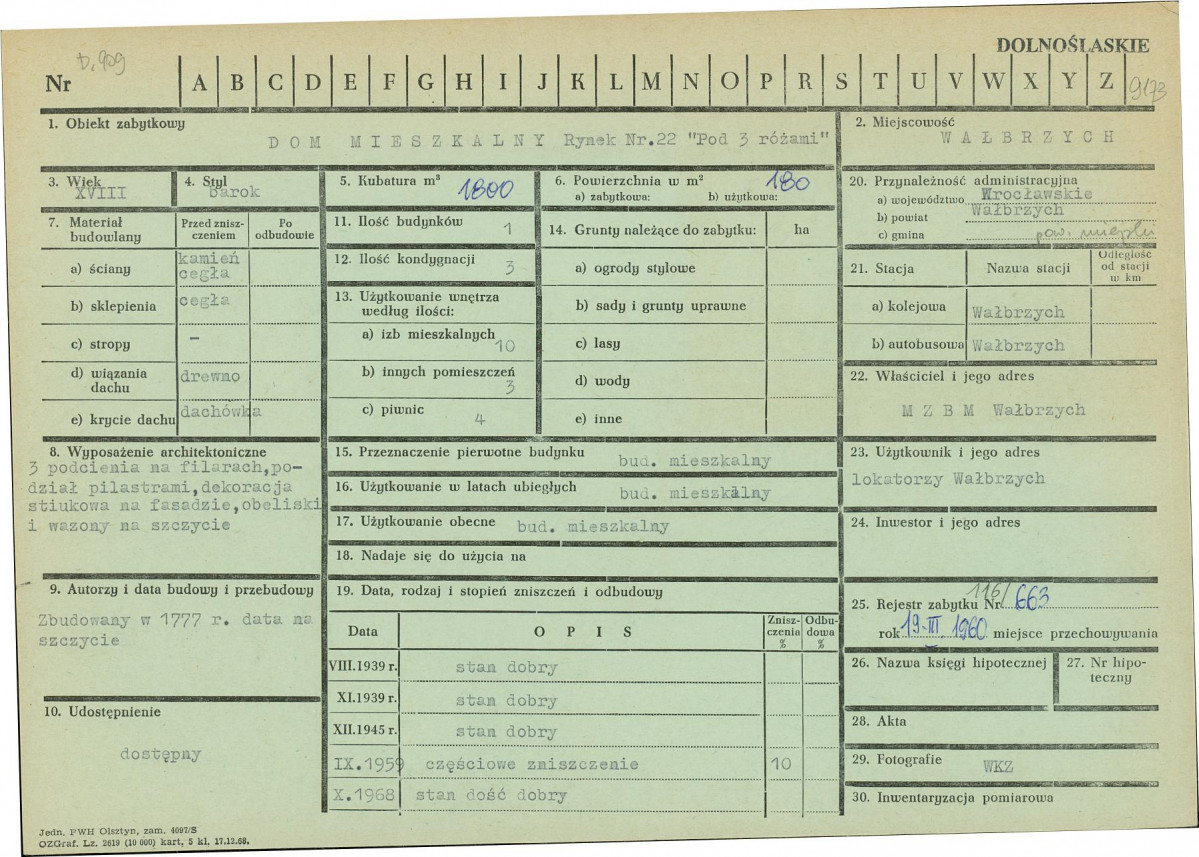 DOLNOŚLASKIE
Nr t. 909 A B C D E F G H I J K L M N O P R S T U V W X Y Z 9/73
1. Obiekt zabytkowy
D O M M I E S Z K A L N Y Rynek Nr.22 "Pod 3 różami"
2. Miejscowość
W A Ł B R Z Y C H
3. Wiek
XVIII
4. Styl
barok
5. Kubatura m³ 1800
6. Powierzchnia w m² 180
a) zabytkowa: b) użytkowa:
7. Materiał budowlany
Przed znisz-
czeniem
Po
odbudowie
a) ściany kamień
cegła
b) sklepienia cegła
c) stropy –
d) wiązania
dachu drewno
e) krycie dachu dachówka
8. Wyposażenie architektoniczne
3 podcienia na filarach,po-
dział pilastrami,dekoracja
stiukowa na fasadzie,obeliski
i wazony na szczycie
9. Autorzy i data budowy i przebudowy
Zbudowany w 1777 r. data na
szczycie
10. Udostępnienie
dostępny
11. Ilość budynków 1
12. Ilość kondygnacji 3
13. Użytkowanie wnętrza
według ilości:
a) izb mieszkalnych 10
b) innych pomieszczeń 3
c) piwnic 4
14. Grunty należące do zabytku: ha
a) ogrody stylowe
b) sady i grunty uprawne
c) lasy
d) wody
e) inne
15. Przeznaczenie pierwotne budynku bud. mieszkalny
16. Użytkowanie w latach ubiegłych bud. mieszkalny
17. Użytkowanie obecne bud. mieszkalny
18. Nadaje się do użycia na
19. Data, rodzaj i stopień zniszczeń i odbudowy
Data O P I S Znisz-
czenia
% Odbu-
dowa
%
VIII.1939 r. stan dobry
XI.1939 r. stan dobry
XII.1945 r. stan dobry
IX.1959 częściowe zniszczenie 10
X.1968 stan dość dobry
20. Przynależność administracyjna
a) województwo Wrocławskie
b) powiat Wałbrzych
c) gmina pow. miejski
21. Stacja Nazwa stacji Odległość
od stacji
w km
a) kolejowa Wałbrzych
b) autobusowa Wałbrzych
22. Właściciel i jego adres
M Z B M Wałbrzych
23. Użytkownik i jego adres
lokatorzy Wałbrzych
24. Inwestor i jego adres
25. Rejestr zabytku Nr 116/663
rok 19-III. 1960 miejsce przechowywania
26. Nazwa księgi hipotecznej
27. Nr hipo-
teczny
28. Akta
29. Fotografie WKZ
30. Inwentaryzacja pomiarowa
Jedn. PWH Olsztyn, zam. 4097/S
OZGraf. Lz. 2619 (10 000) kart, 5 kl, 17.12.68.